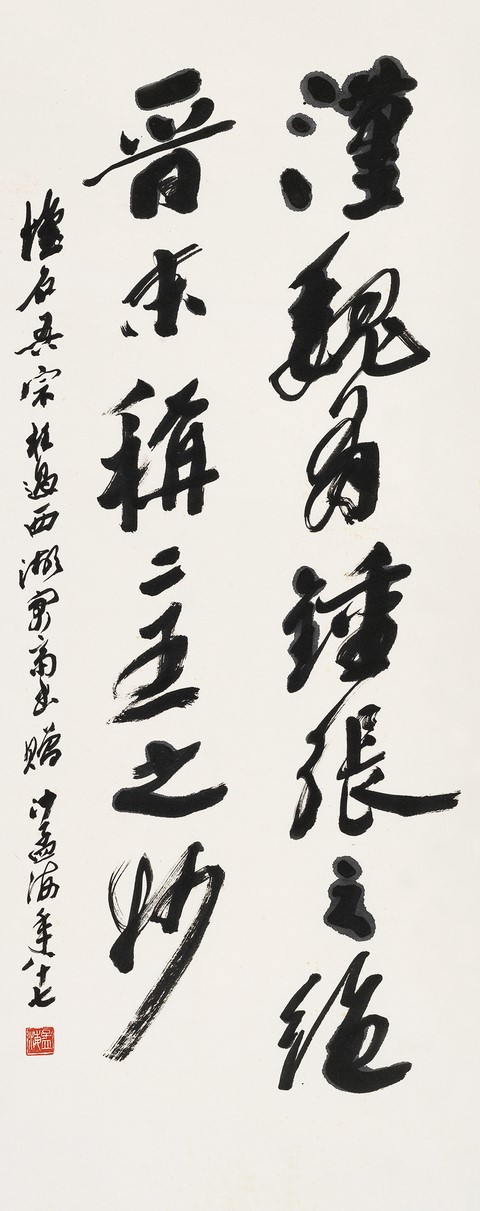 漢魏有鍾張之絕
晉末稱二王之妙
石吾宗枉過西湖寓齋書贈 沙孟海年八十七
孟海